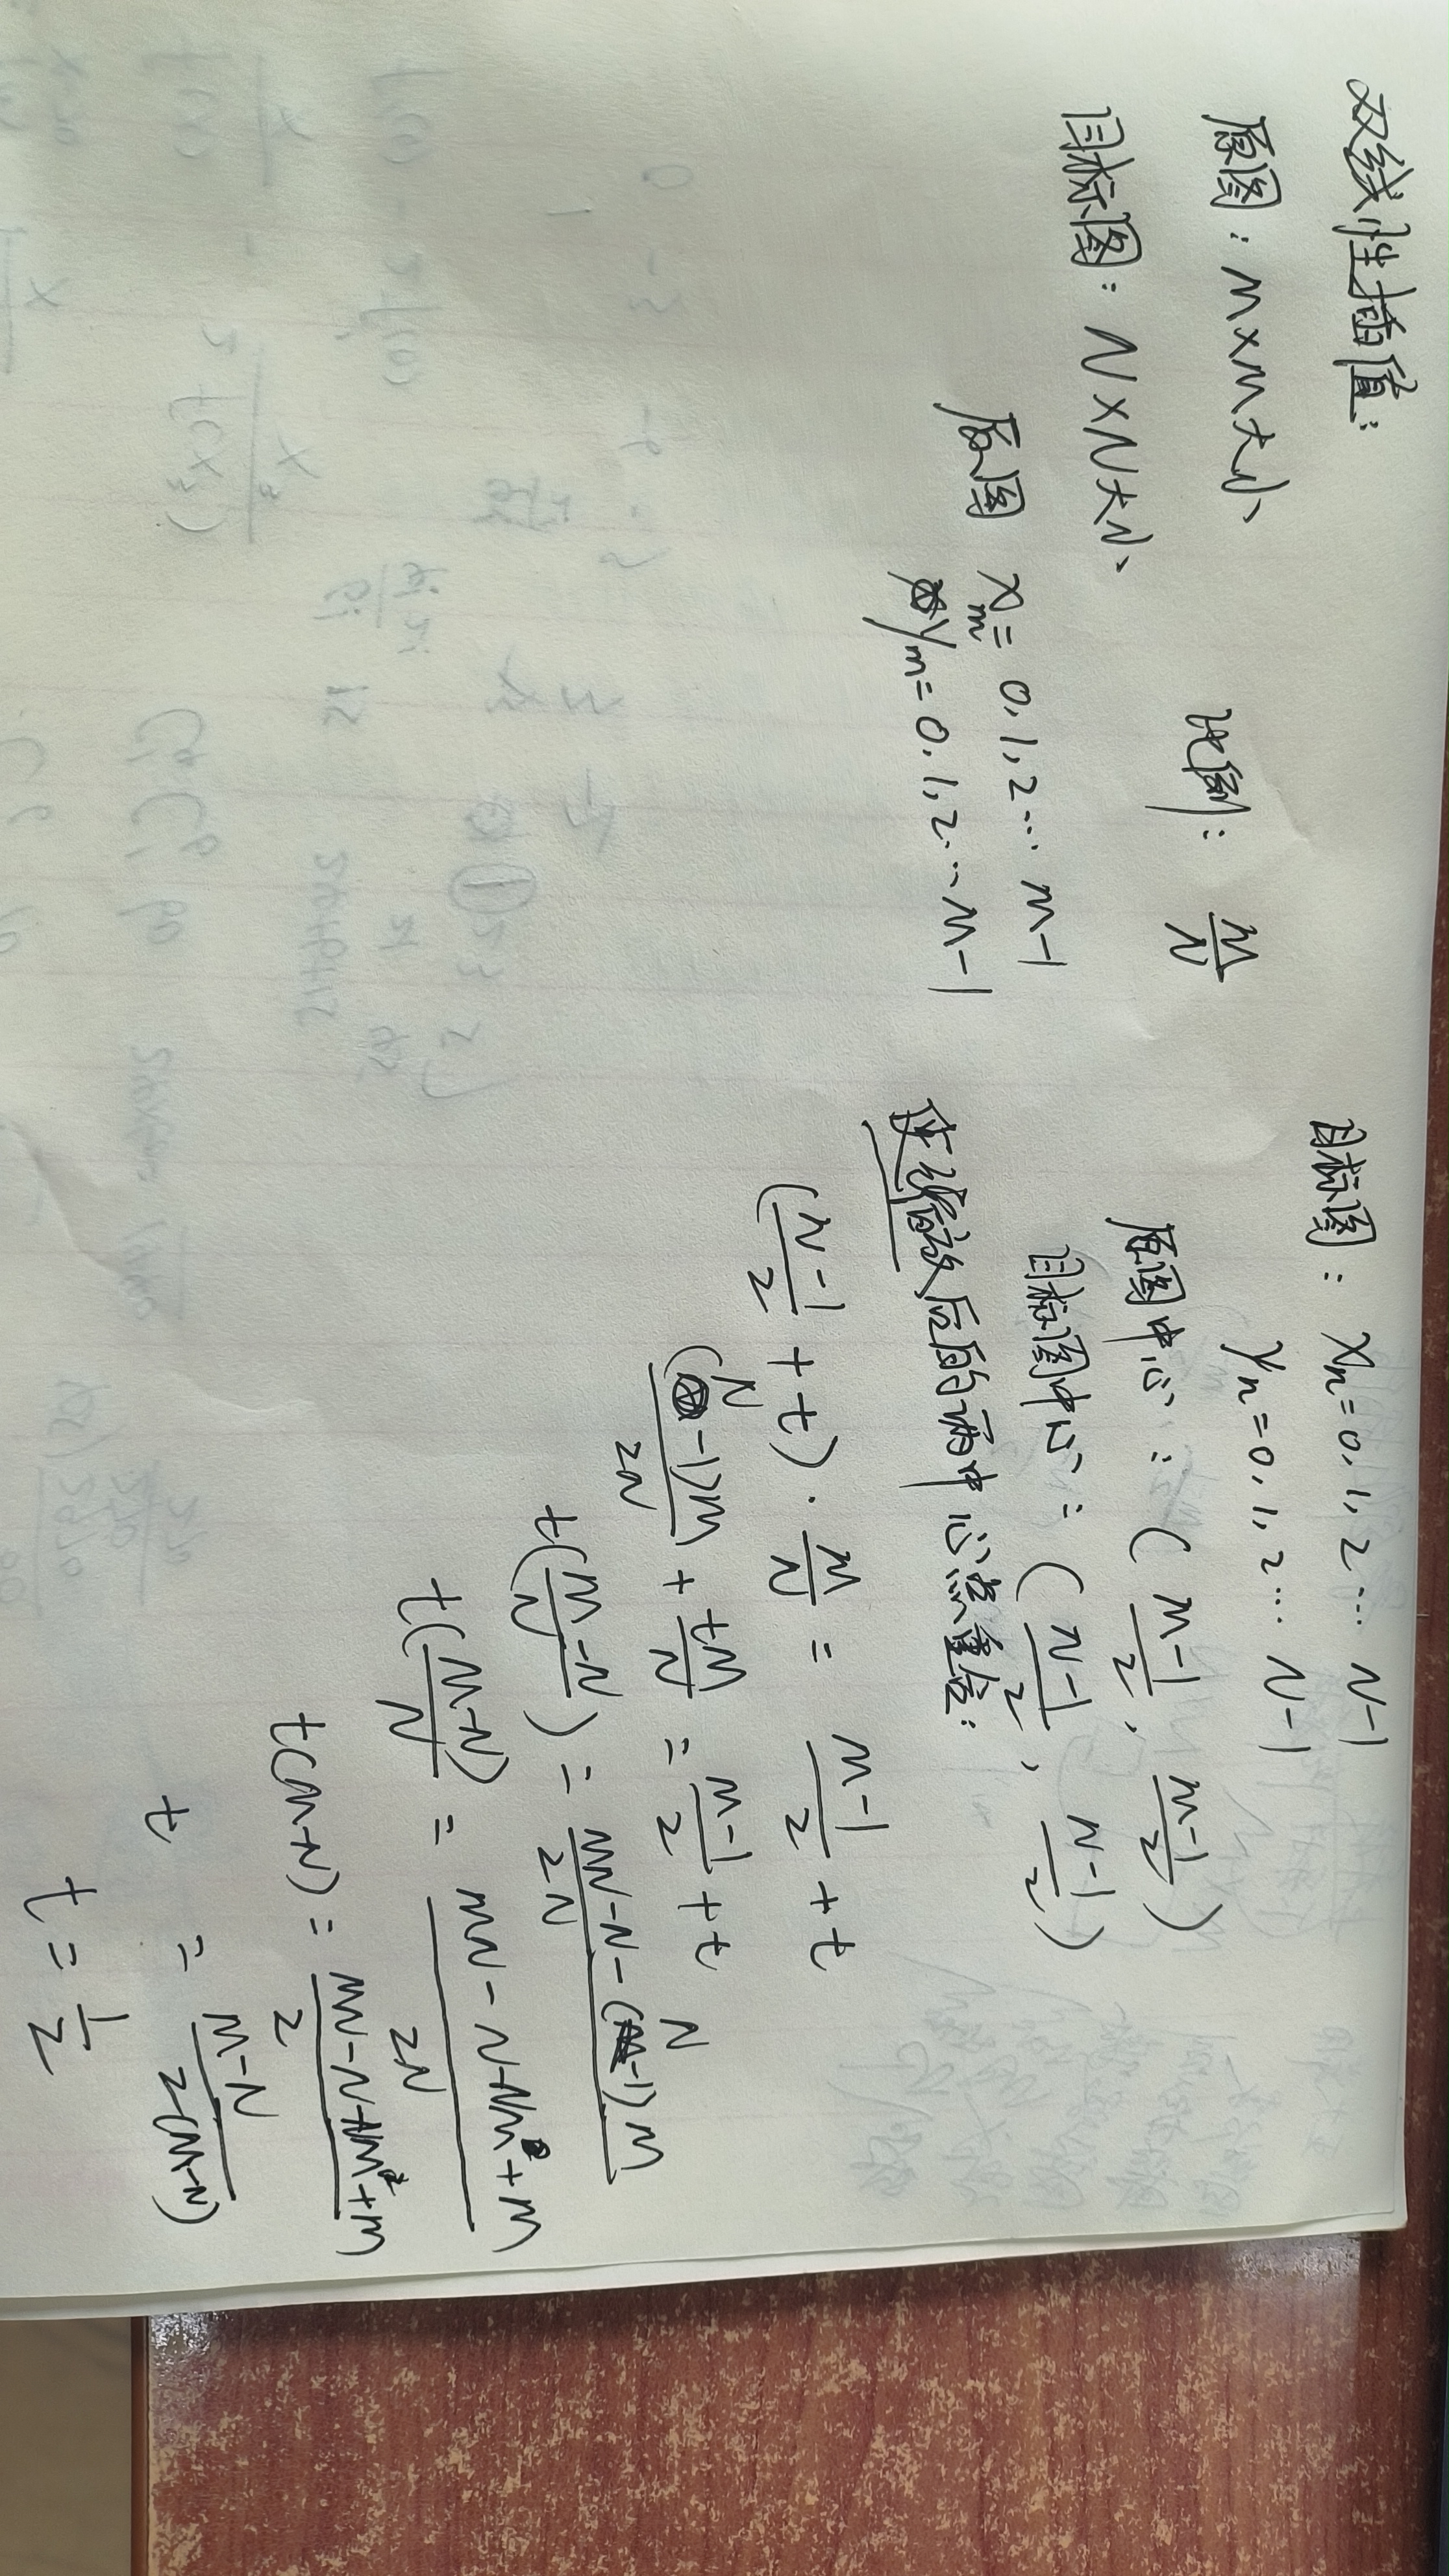 双线性插值:
原图: M×M大小
比例: M/N
目标图: N×N大小
原图 Xm = 0,1,2... M-1
Ym = 0,1,2... M-1
目标图: Xn = 0,1,2... N-1
Yn = 0,1,2... N-1
原图中心: ( (M-1)/2, (M-1)/2 )
目标图中心: ( (N-1)/2, (N-1)/2 )
使缩放后的两中心点重合:
( (N-1)/2 + t ) · M/N = (M-1)/2 + t
(N-1)M/2N + tM/N = (M-1)/2 + t
t( (M-N)/N ) = (MN-N-(N-1)M)/2N
t( (M-N)/N ) = (MN-N-NM+M)/2N
t(M-N) = (MN-N-NM+M)/2
t = (M-N)/2(M-N)
t = 1/2